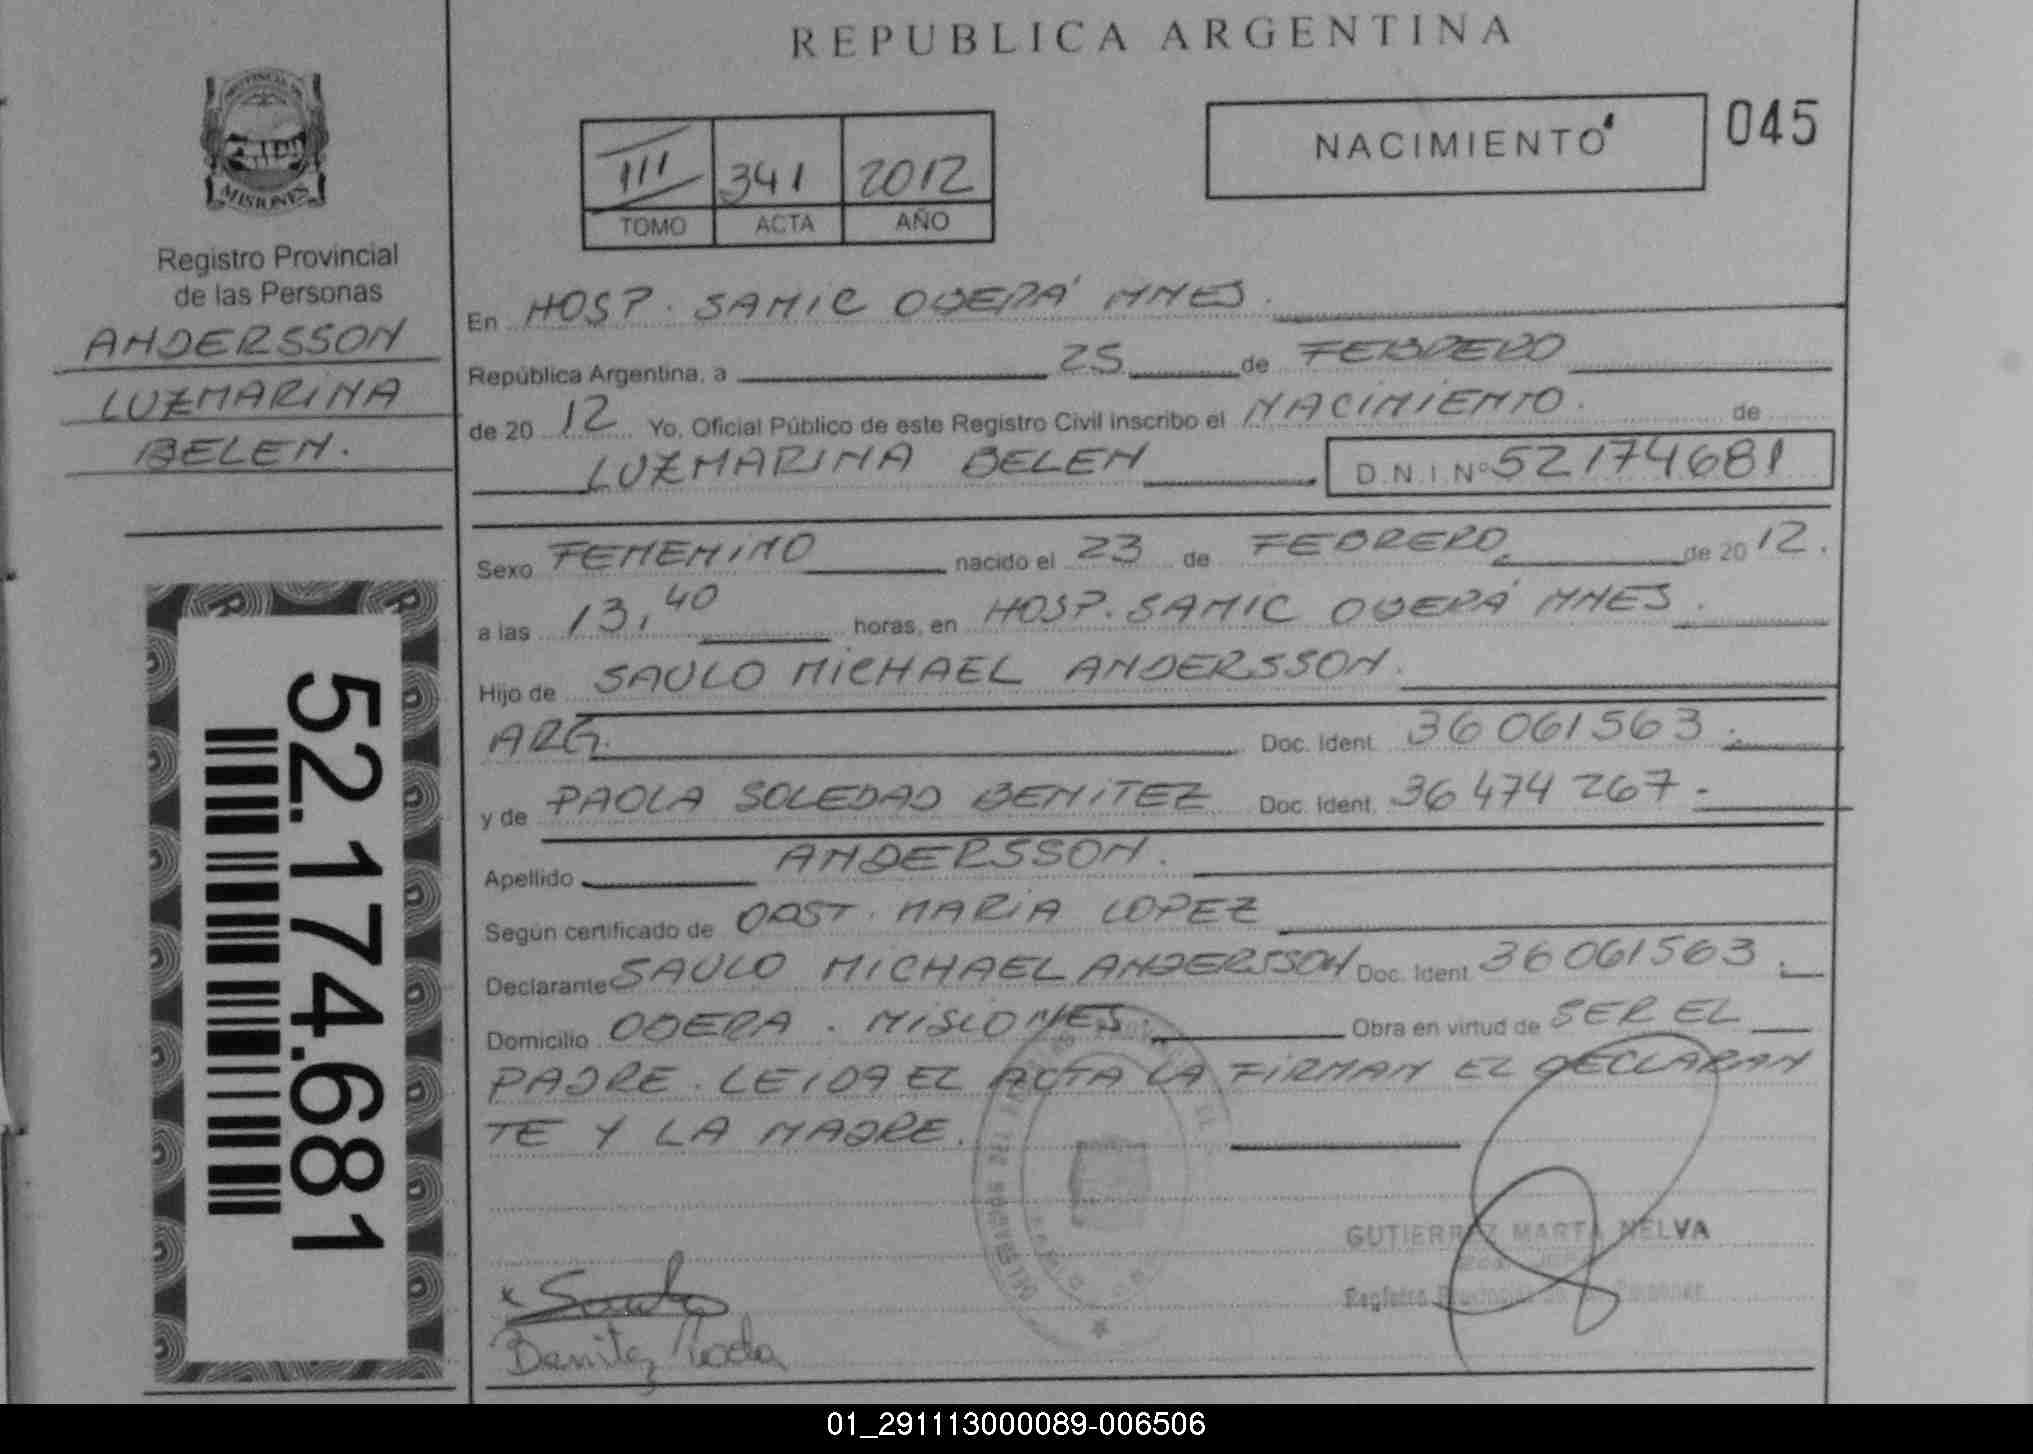 REPUBLICA ARGENTINA
MISIONES
Registro Provincial
de las Personas
ANDERSSON
LUZMARINA
BELEN.
52.174.681
III 341 2012
TOMO ACTA AÑO
NACIMIENTO
045
En HOSP. SAMIC OBERÁ MNES.
República Argentina, a 25 de FEBRERO
de 20 12 Yo, Oficial Público de este Registro Civil inscribo el NACIMIENTO. de
LUZMARINA BELEN D.N.I. Nº 52174681
Sexo FEMENINO nacido el 23 de FEBRERO de 20 12.
a las 13,40 horas, en HOSP. SAMIC OBERÁ MNES.
Hijo de SAULO MICHAEL ANDERSSON.
ARG. Doc. Ident. 36061563.
y de PAOLA SOLEDAD BENITEZ Doc. Ident. 36474267.
Apellido ANDERSSON.
Según certificado de OBST. MARIA LOPEZ
Declarante SAULO MICHAEL ANDERSSON Doc. Ident. 36061563.
Domicilio OBERA. MISIONES Obra en virtud de SER EL
PADRE. LEIDA EL ACTA LA FIRMAN EL DECLARAN
TE Y LA MADRE.
GUTIERREZ MARTA NELVA
Registro Provincial de las Personas
Benitez Paola
01_291113000089-006506